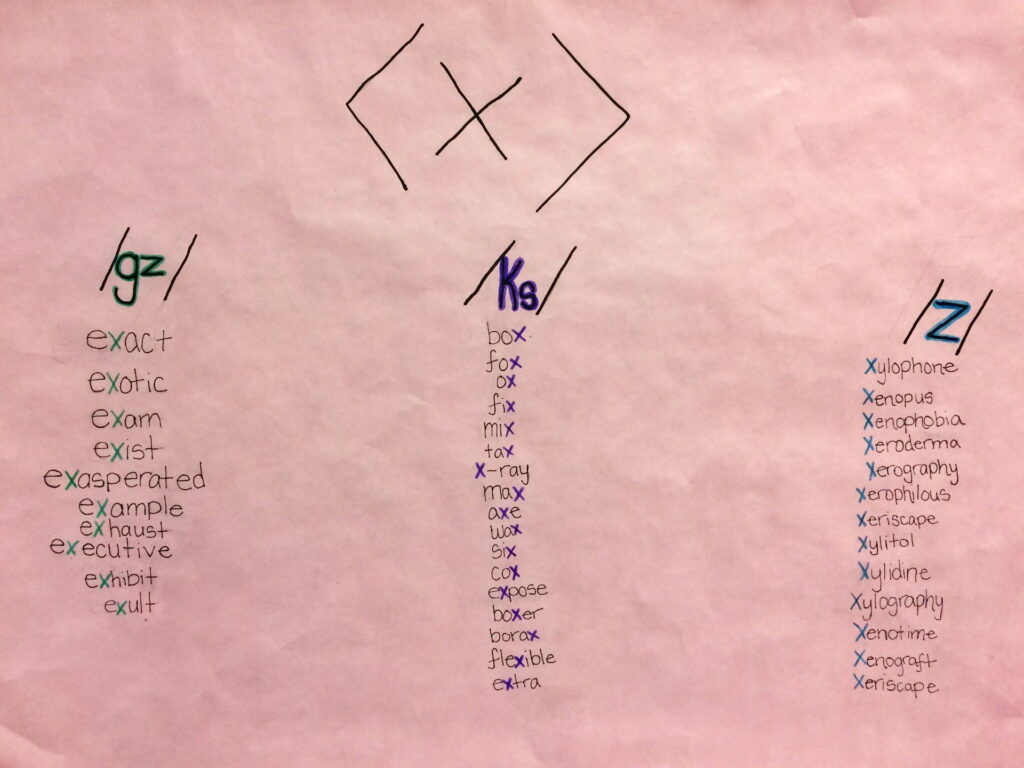 <x>
/gz/
exact
exotic
exam
exist
exasperated
example
exhaust
executive
exhibit
exult
/Ks/
box
fox
ox
fix
mix
tax
x-ray
max
axe
wax
six
cox
expose
boxer
borax
flexible
extra
/Z/
Xylophone
Xenopus
Xenophobia
Xeroderma
Xerography
Xerophilous
Xeriscape
Xylitol
Xylidine
Xylography
Xenotime
Xenograft
Xeriscape